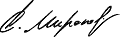 С. Миронов